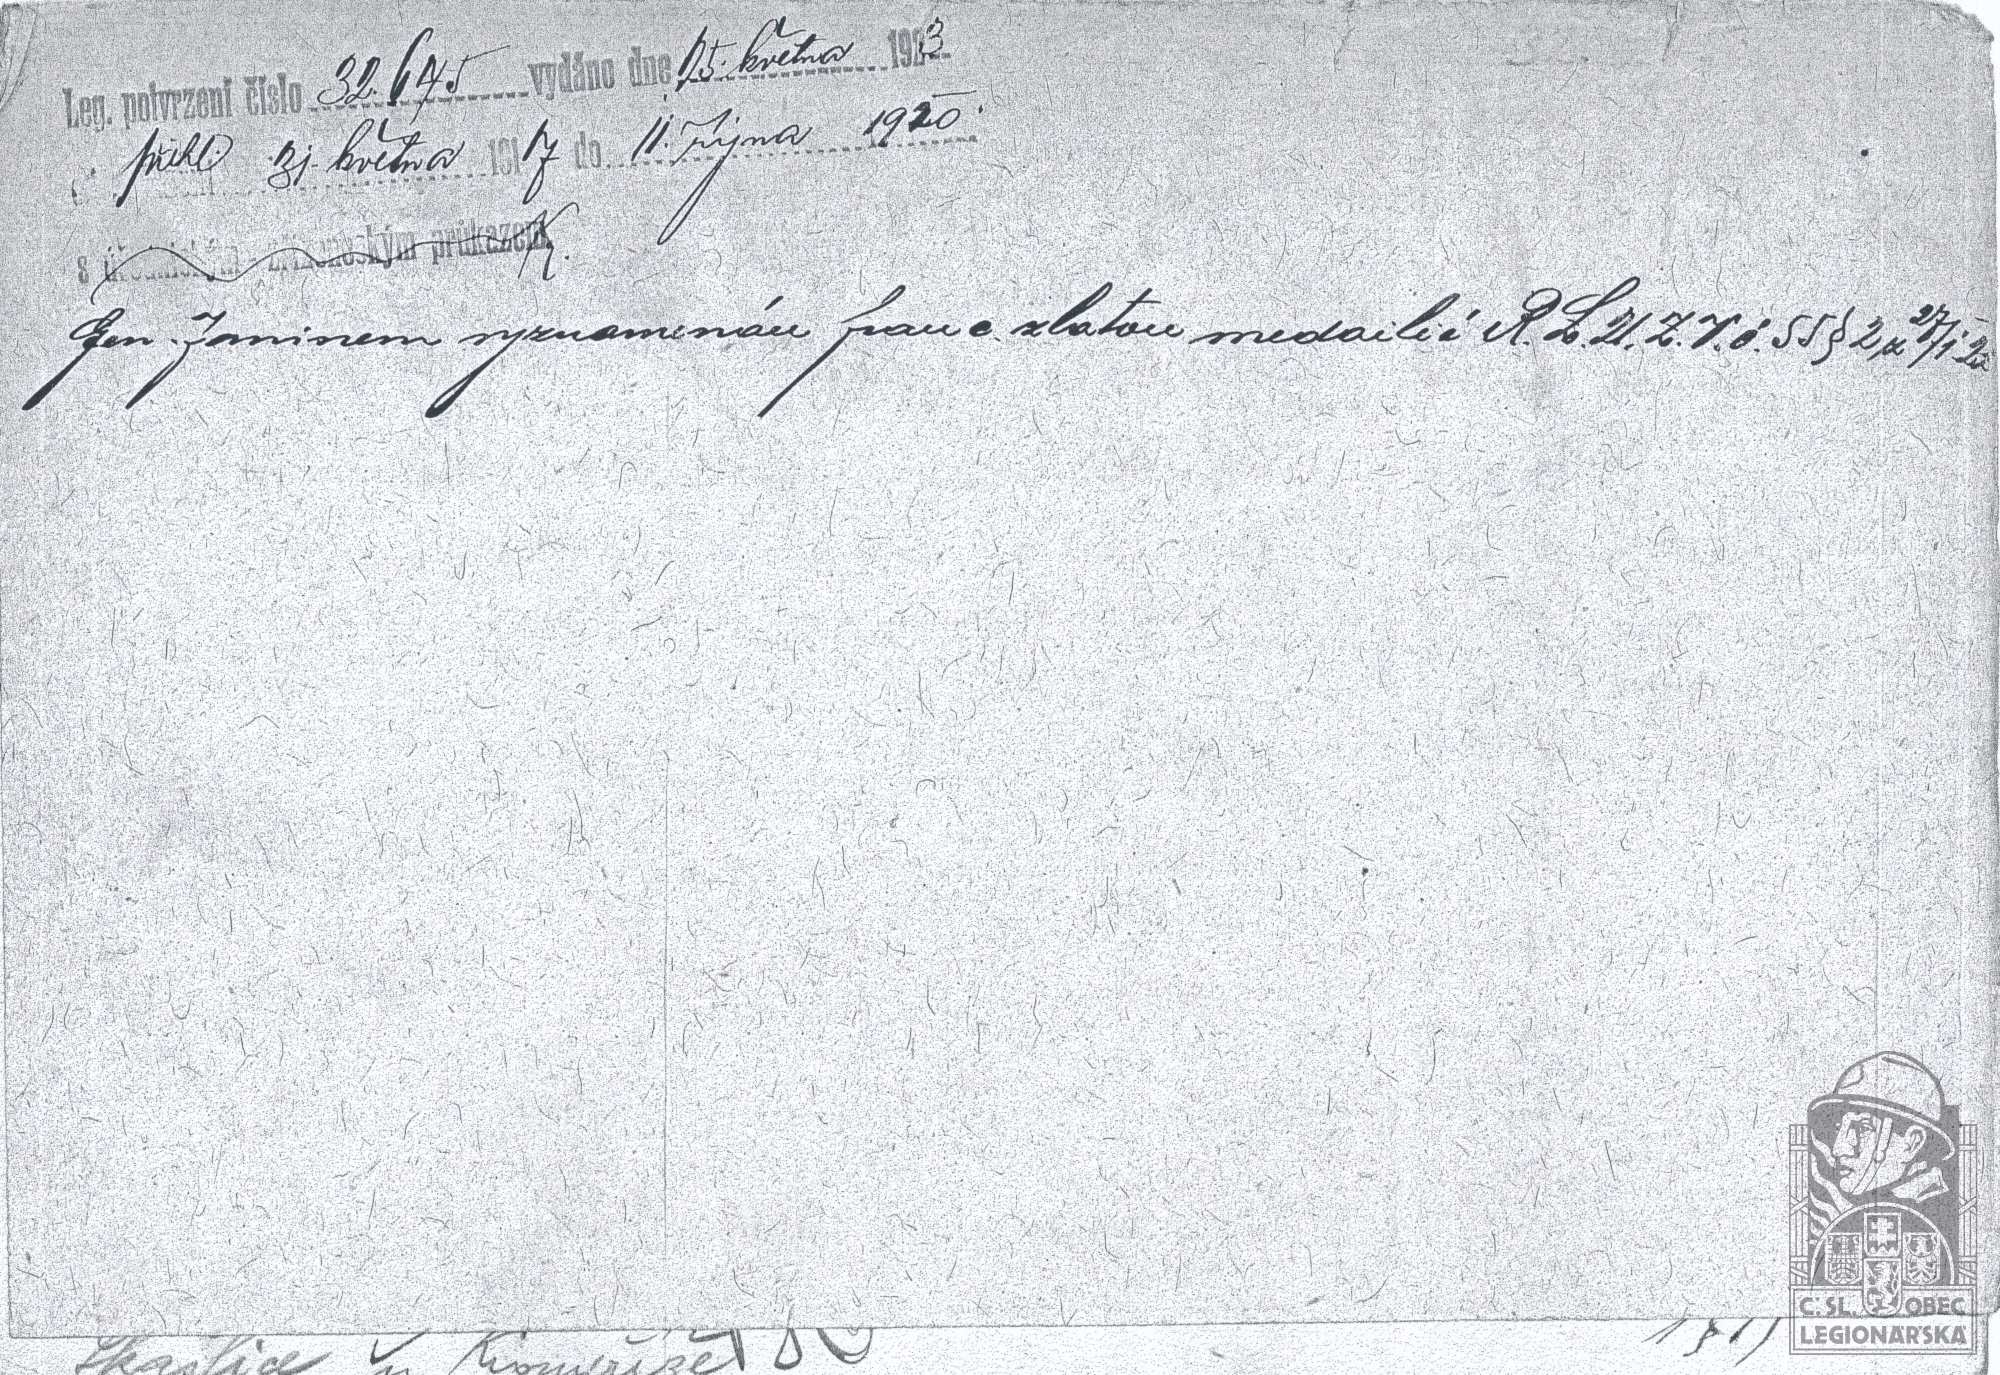 Leg. potvrzení číslo 32.645 vydáno dne 15. května 1923
přihl. 31. května 1917 do 11. října 1920.
s úřednickým - zřízeneckým průkazem
Gen. Janinem vyznamenán franc. zlatou medailií R. L. 21. Z. V. č. 55 § 2 z 27/1 22
Skaštice u Kroměříže
Č. SL. OBEC
LEGIONÁŘSKÁ